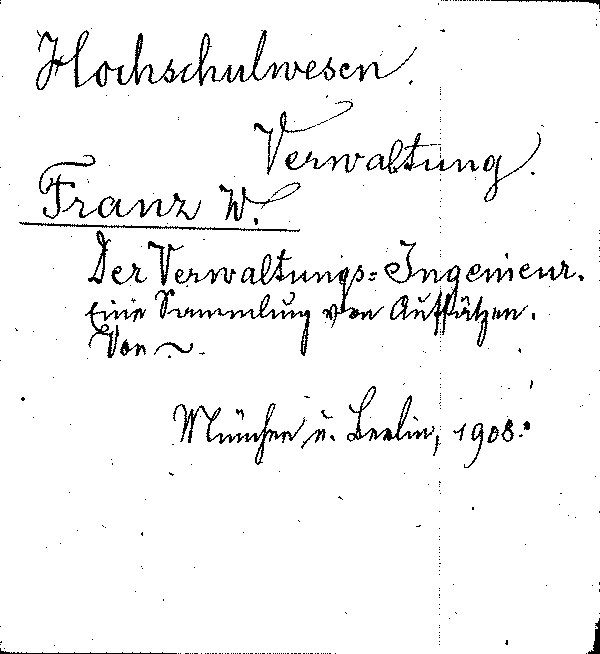 Hochschulwesen.
Verwaltung.
Franz W.
Der Verwaltungs=Ingenieur.
Eine Sammlung von Aufsätzen.
Von ~.
München u. Berlin, 1908.